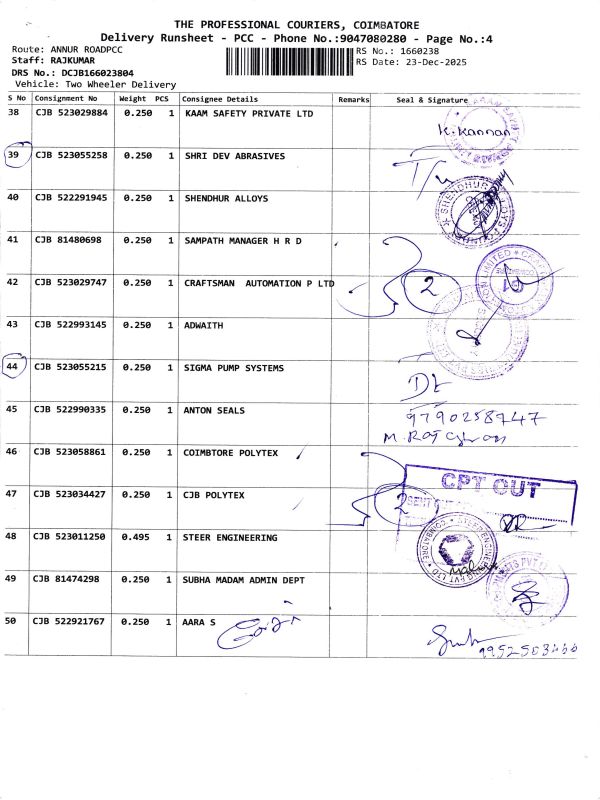 THE PROFESSIONAL COURIERS, COIMBATORE
Delivery Runsheet - PCC - Phone No.:9047080280 - Page No.:4
Route: ANNUR ROADPCC RS No.: 1660238
Staff: RAJKUMAR RS Date: 23-Dec-2025
DRS No.: DCJB166023804
Vehicle: Two Wheeler Delivery
S No Consignment No Weight PCS Consignee Details Remarks Seal & Signature
38 CJB 523029884 0.250 1 KAAM SAFETY PRIVATE LTD
K. Kannan
39 CJB 523055258 0.250 1 SHRI DEV ABRASIVES
40 CJB 522291945 0.250 1 SHENDHUR ALLOYS
41 CJB 81480698 0.250 1 SAMPATH MANAGER H R D
42 CJB 523029747 0.250 1 CRAFTSMAN AUTOMATION P LTD 2
43 CJB 522993145 0.250 1 ADWAITH
44 CJB 523055215 0.250 1 SIGMA PUMP SYSTEMS
45 CJB 522990335 0.250 1 ANTON SEALS 9790258747
46 CJB 523058861 0.250 1 COIMBTORE POLYTEX
CPT CUT
47 CJB 523034427 0.250 1 CJB POLYTEX 2
48 CJB 523011250 0.495 1 STEER ENGINEERING
49 CJB 81474298 0.250 1 SUBHA MADAM ADMIN DEPT
50 CJB 522921767 0.250 1 AARA S